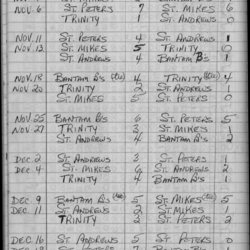 Nov. 6 St. Peters 7 St. Mikes 6
Trinity 1 St. Andrews 0
Nov. 11 St. Peters 4 St. Andrews 1
Nov. 13 St. Mikes 5 Trinity 0
St. Andrews 4 Bantam B's 1
Nov. 18 Bantam B's 4 Trinity 4
Nov. 20 Trinity 2 St. Andrews 1
St. Mikes 5 St. Peters 0
Nov. 25 Bantam B's 6 St. Peters 5
Nov. 27 Trinity 3 St. Mikes 1
St. Andrews 4 Bantam B's 2
Dec. 2 St. Andrews 5 St. Peters 1
Dec. 4 St. Mikes 6 St. Andrews 2
Trinity 4 Bantam B's 1
Dec. 9 Bantam B's 5 St. Mikes 5
Dec. 11 St. Andrews 2 St. Mikes 1
Trinity 5 St. Peters 2
Dec. 16 St. Andrews 5 St. Peters 0